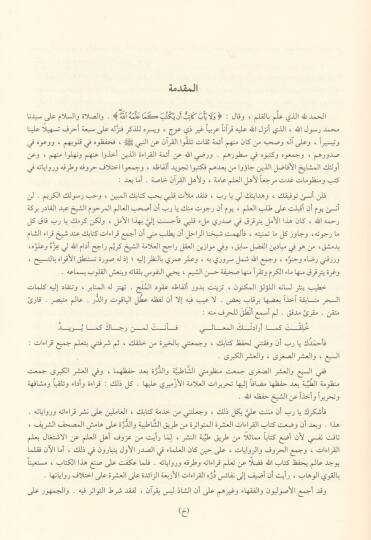 المقدمة
الحمد لله الذي علّم بالقلم ، وقال : ﴿ وَلَا يَأْبَ كَاتِبٌ أَن يَكْتُبَ كَمَا عَلَّمَهُ اللَّهُ ﴾ . والصلاة والسلام على سيدنا
محمد رسول الله ، الذي أنزل الله عليه قرآناً عربياً غير ذي عوج ، ويسره للذكر فنزّله على سبعة أحرف تسهيلاً علينا
وتيسيراً ، وعلى آله وصحبه من كان منهم أئمة ثقات تلقَّوا القرآن عن النبي ﷺ ، فحفظوه في قلوبهم ، ووعوه في
صدورهم ، وجمعوه وكتبوه في سطورهم . ورضي الله عن أئمة القراءة الذين أخذوا عنهم ونهلوا منهم ، وعن
أولئك المشايخ الأفاضل الذين جاؤوا من بعدهم فكتبوا تجويد ألفاظه ، وجمعوا اختلاف حروفه وطرقه ورواياته في
كتب ومنظومات غدت مرجعاً لأهل العلم عامة ، ولأهل القرآن خاصة . أما بعد :
فلن أنسى توفيقك ، وهدايتك لي يا رب ، فلقد ملأت قلبي بحب كتابك المبين ، وحب رسولك الكريم . لن
أنسى يوم أن أقبلت على طلب العلم ، يوم أن رجوت منك يا رب أن أصحب العالم المرحوم الشيخ عبد القادر بركة
رحمه الله ، كان هذا الأمل يترقرق في صدري ملء قلبي فأحسست إليّ بهذا الأمل ، ولكن كرمك يا رب فاق كل
ما رجوته ، وجاوز كل ما تمنيته ، فألهمت شيخنا الراحل أن يطلب مني أن أجمع قراءات كتابك عند شيخ قراء الشام
بدمشق ، من هو في ميادين الفضل سابق ، وفي موازين العقل راجح العلامة الشيخ كريّم راجح أدام الله لي عزّه وعلوّه ،
ورزقني رضاه وحنوّه ، وجمع الله شمل سروري به ، وعمّر عمري بالنظر إليه ؛ إذ له صورة تستنطق الأفواه بالتسبيح ،
وغرة يترقرق منها ماء الكرم وتقرأ منها صحيفة حسن الشيم ، يحيي النفوس بلقائه وينعش القلوب بسماعه .
خطيب ينثر لسانه اللؤلؤ المكنون ، تزينت بدور ألفاظه عقود المُلَح . تهتز له المنابر ، وتنقاد إليه كلمات
السحر متسابقة آخذاً بعضها برقاب بعض . لا عيب فيه إلا أن لفظه عطّل الياقوت والدُّر . عالم متبصر . قارئ
متقن . مقرئ مدقق . لم أسمع أنطَقَ للحرف منه :
خُلِقْتَ كما أرادتْكَ المعالي فأنتَ لمن رجاكَ كما يُريد
فأحمَدُك يا رب أن وفقتني لحفظ كتابك ، وجمعتني بالخيرة من خلقك ، ثم شرفتني بتعلم جميع قراءاته :
السبع ، والعشر الصغرى ، والعشر الكبرى .
ففي السبع والعشر الصغرى جمعت منظومتي الشّاطبية والدُّرَّة بعد حفظهما ، وفي العشر الكبرى جمعت
منظومة الطَّيّبة بعد حفظها مضافاً إليها تحريرات العلامة الأزميري عليها . كل ذلك : قراءة وأداء وتلقياً ومشافهة
وتحريراً وأخذاً عن الشيخ حفظه الله .
فأشكرك يا رب أن مننت عليّ بكل ذلك ، وجعلتني من خدمة كتابك ، العاملين على نشر قراءاته ورواياته .
هذا . وبعد أن وضعت كتاب القراءات العشرة المتواترة من طريق الشّاطبية والدُّرَّة على هامش المصحف الشريف ،
تاقت نفسي لأن أضع كتاباً مماثلاً من طريق طيّبة النشر ، لِمَا رأيت من عزوف أهل العلم عن الاشتغال بعلم
القراءات ، وجمع الحروف والروايات ، على حين كان العلماء في الصدر الأول يتبارون في ذلك ، أما الآن فقلما
يوجد عالم يحفظ كتاب الله فضلاً عن تعلم قراءاته وطرقه ورواياته . فلما عكفت على صنع هذا الكتاب ، مستعيناً
بالقوي الوهاب ، رأيت أن أضيف إلى نفائس دُرَره القراءات الأربعة الزائدة على العشرة على اختلاف رواياتها .
وقد أجمع الأصوليون والفقهاء وغيرهم على أن الشاذ ليس بقرآن ، لفقد شرط التواتر فيه . والجمهور على
(خ)